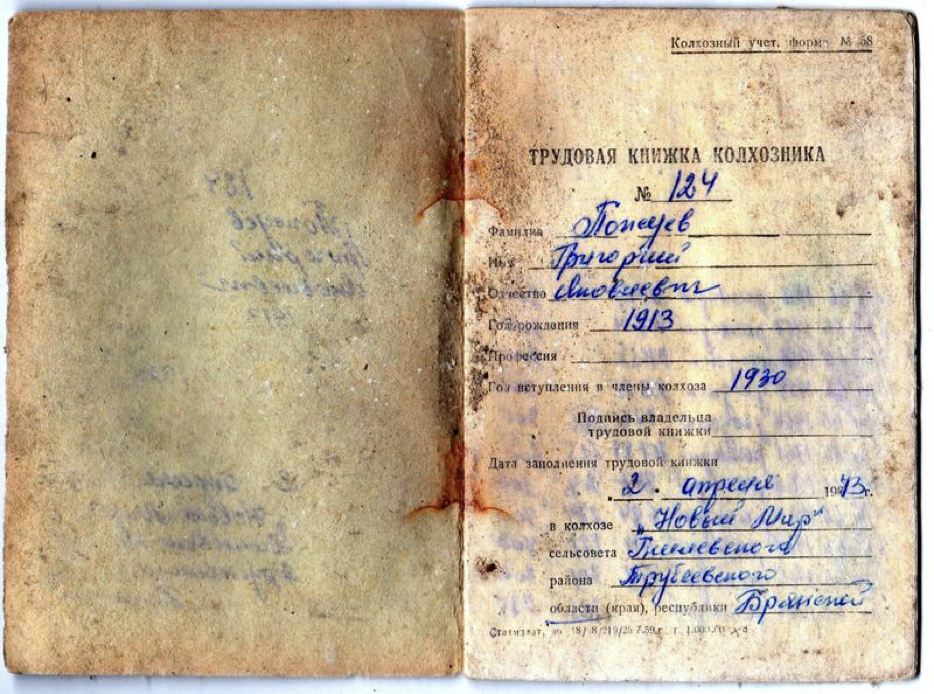 Колхозный учет, форма № 58
ТРУДОВАЯ КНИЖКА КОЛХОЗНИКА
№ 124
Фамилия
Имя Григорий
Отчество Яковлевич
Год рождения 1913
Профессия
Год вступления в члены колхоза 1930
Подпись владельца
трудовой книжки
Дата заполнения трудовой книжки
2 апреля 1973г.
в колхозе „Новый Мир“
сельсовета
района Трубчевского
области (края), республики Брянской
Статиздат,